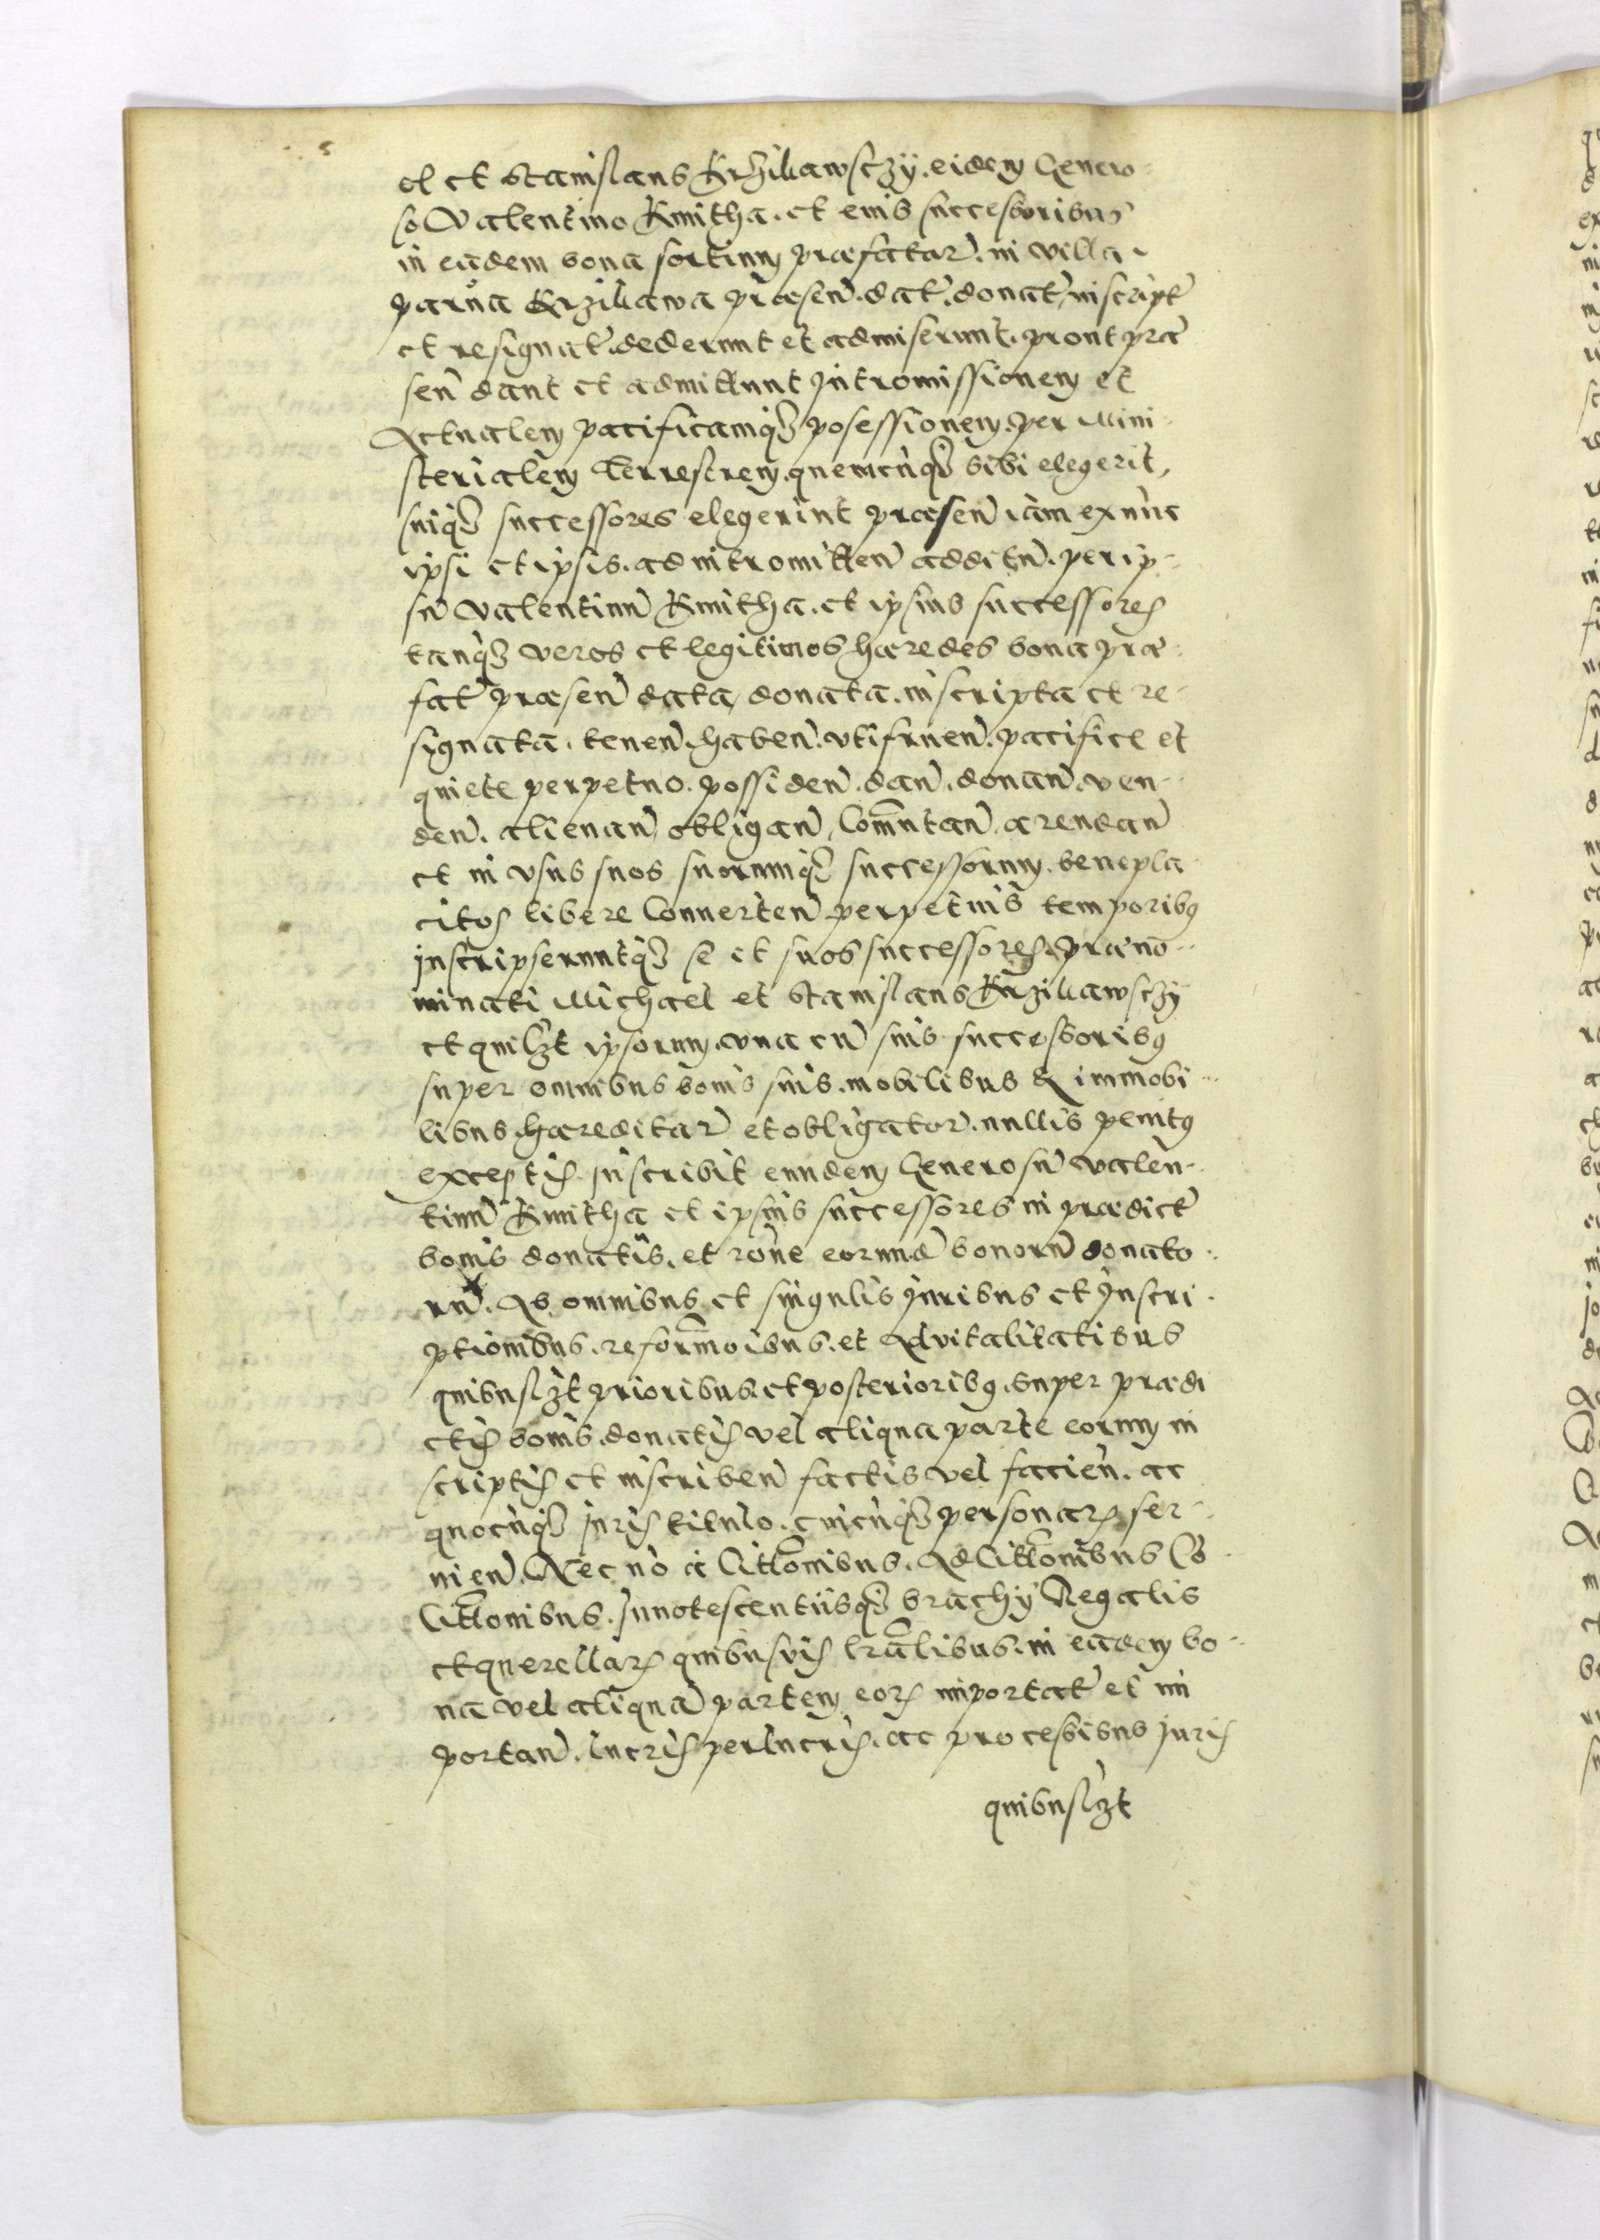 el et Stanislaus Krziliawsczÿ. eidem Genero-
so Valentino Kmitha. et eius successoribus
in eadem bona sortium præfatar̃. in villa
parua Krziliawa præsen̄. dat̃. donat̃, inscript̃
et resignat̃. dederunt et admiserunt. prout præ
sen̄ dant et admittunt Intromissionem et
Actualem pacificamq₃ posessionem. per Mini-
sterialem Terrestrem. quemcūq₃ sibi elegerit,
suiq₃ successores elegerint præsen̄ iam exnūc
ipsi et ipsis. ad intromitten̄ additū. per ip-
sū Valentinū Kmitha. et ipsius successores
tanq₃ veros et legitimos hæredes bona præ-
fat̃ præsen̄ data, donata. inscripta et re-
signata. tenen̄. haben̄. vtifruen̄. pacifice et
quiete perpetuo. possiden̄. dan̄. donan̄. ven-
den̄. alienan̄, obligan̄, Com̄utan̄. arendan̄
et in vsus suos suorumq₃ successorum. benepla-
citos libere Conuerten̄. perpetuis temporibꝯ
Inscripseruntq₃ se et suos successores. præno-
minati Michael et Stanislaus Krziliawsczÿ
et quilꝫt ipsorum. vna cū suis successoribꝯ
super omnibus bonis suis. mobilibus & immobi-
libus. hæreditar̃ et obligator̃. nullis penitꝯ
exceptis. inscribit eundem Generosū Valen-
tinū Kmitha et ipsius successores in prædict̃
bonis donatis. et rōne eorund̃ bonorū donato-
rū. Ab omnibus et singulis Iuribus et Inscri-
ptionibus. reform̄oibus. et Aduitalitatibus
quibuslꝫt prioribus. et posterioribꝯ. super prædi
ctis bonis. donatis vel aliqua parte eorum in
scriptis et inscriben̄ factis vel facien̄. ac
quocūq₃ juris titulo. cuicūq₃ personarꝝ ser-
uien̄. Nec nō a Citt̄onibus. Adcitt̄onibus Co-
citt̄onibus. Innotescentiisq₃ brachÿ Regalis
et querellarꝝ quibusvis tr̄alibus. in eadem bo-
na vel aliquā partem eorꝝ importat̃ et im
portan̄. lucris perlucris. ac processibus juris
quibuslꝫt